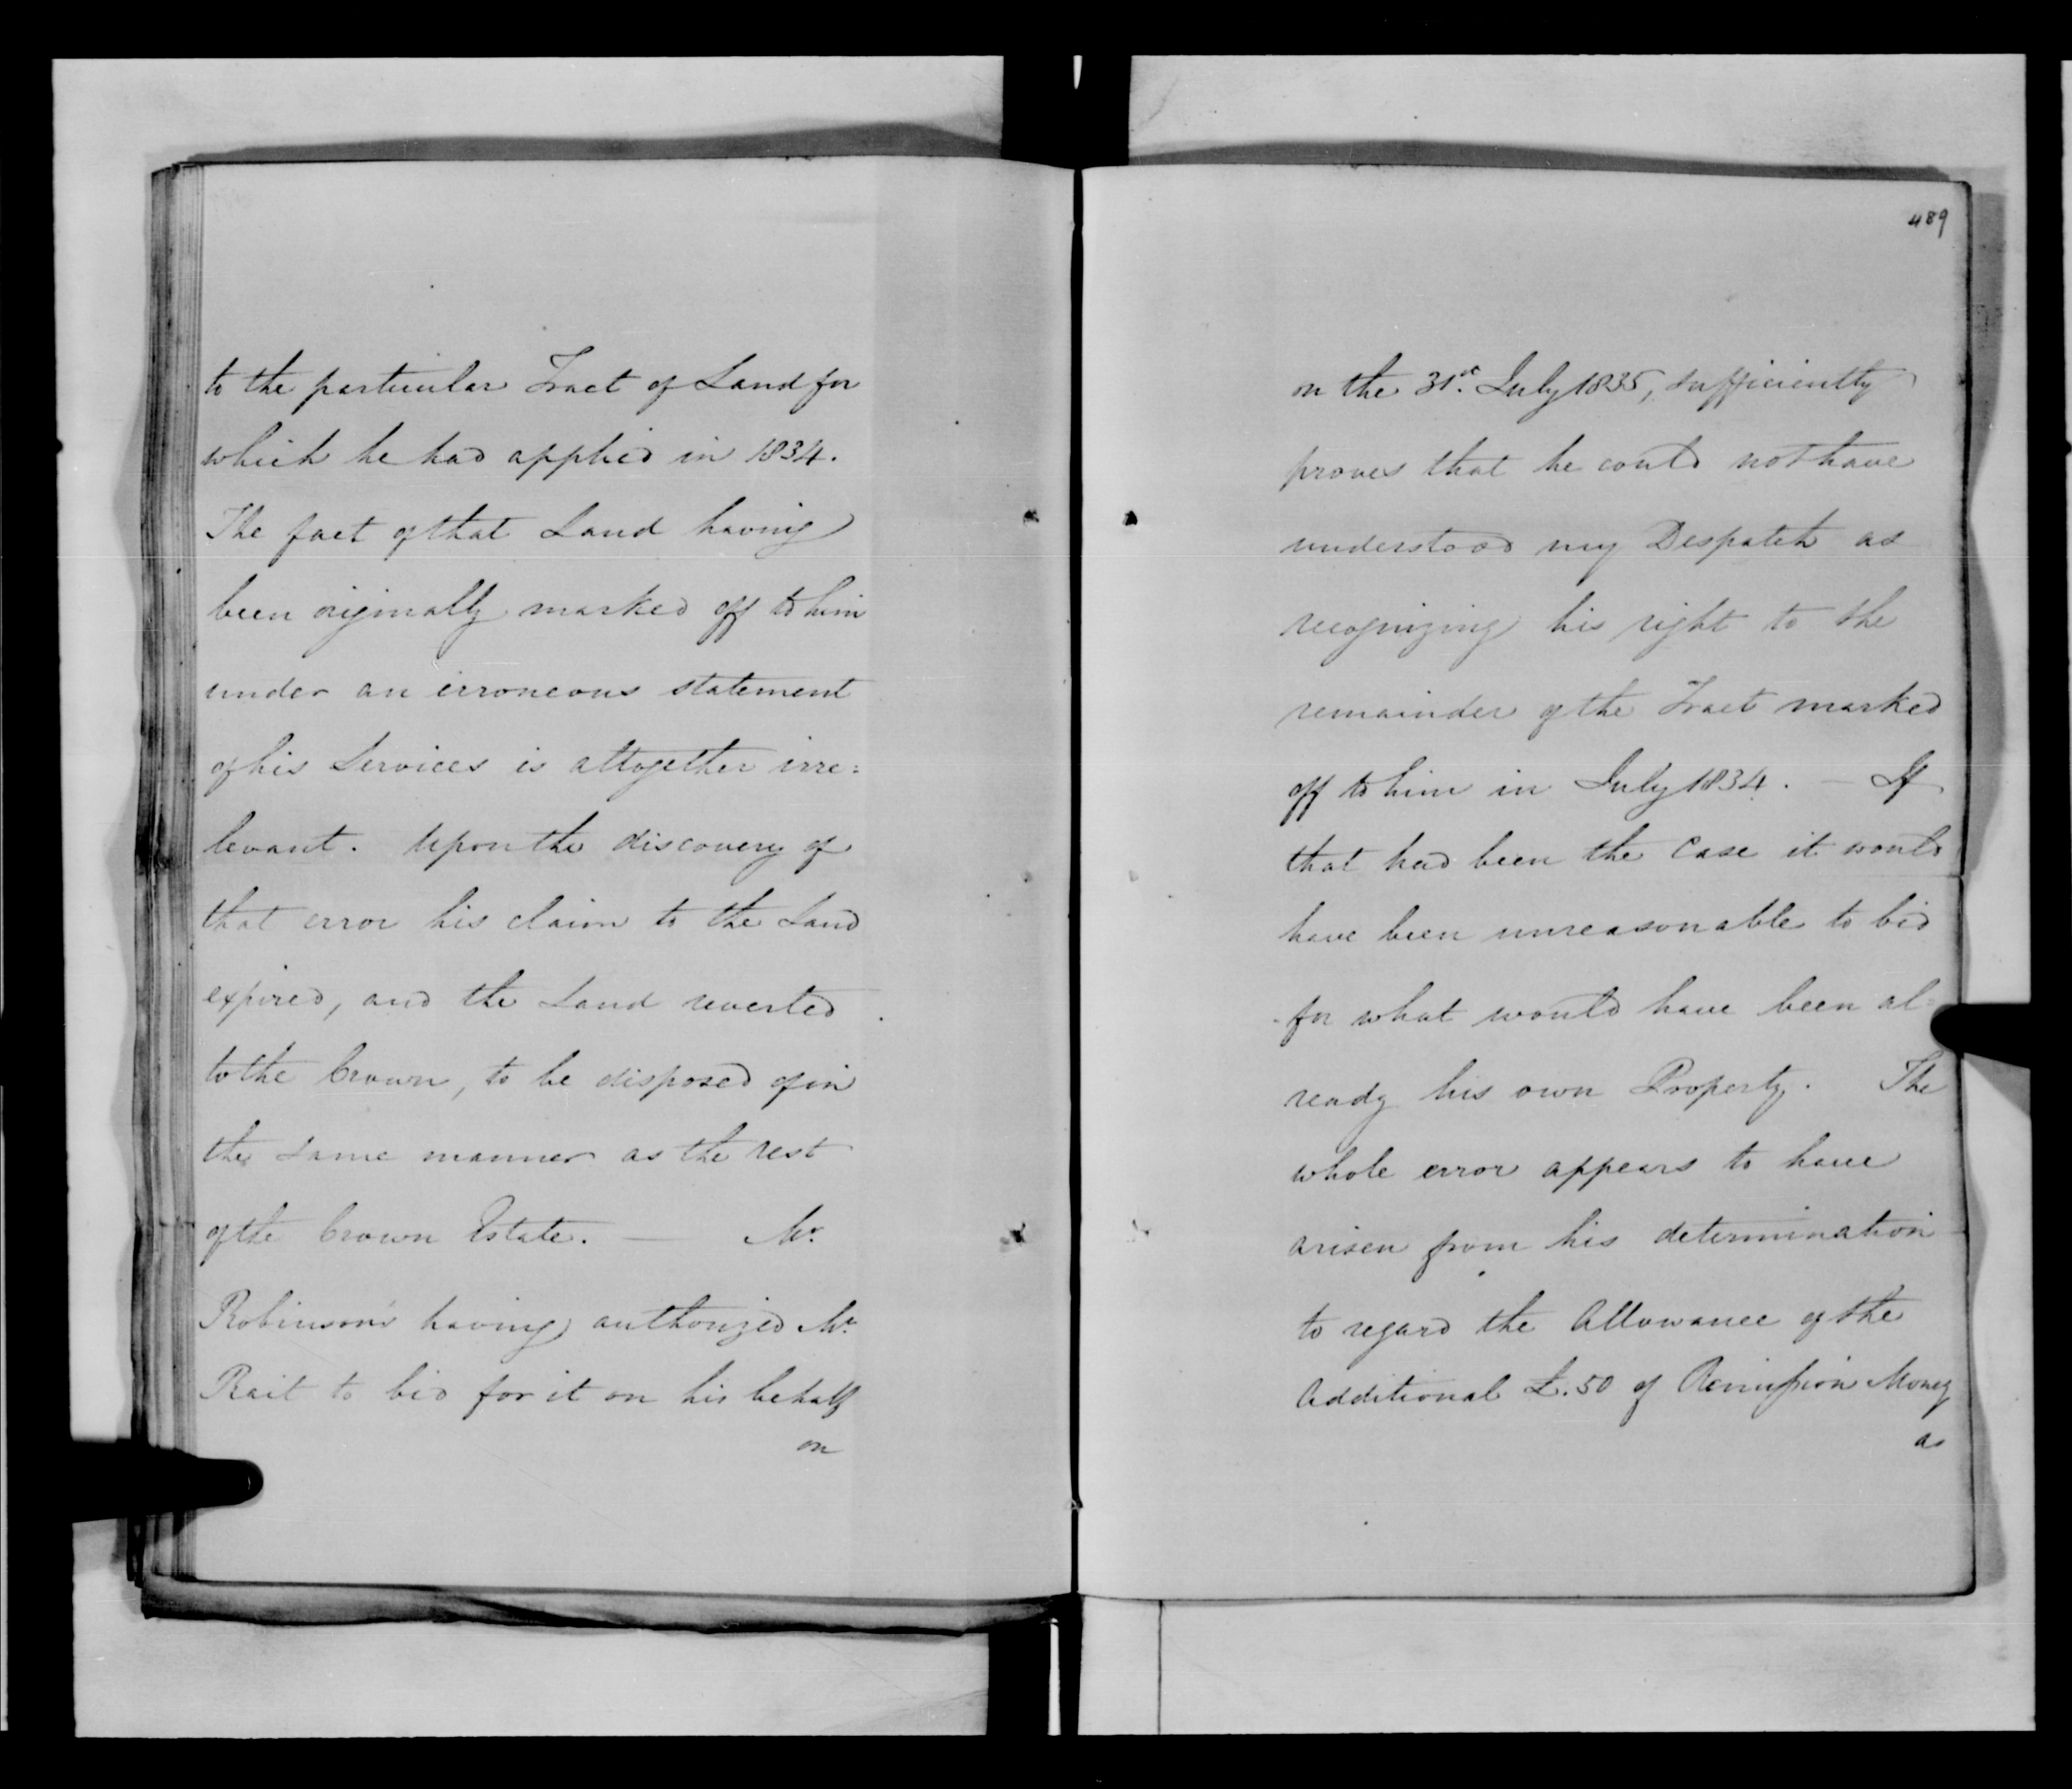 to the particular Tract of Land for
which he had applied in 1834.
The fact of that Land having
been originally marked off to him
under an erroneous statement
of his Services is altogether irre:
levant. Upon the discovery of
that error his claim to the Land
expired, and the Land reverted
to the Crown, to be disposed of in
the same manner as the rest
of the Crown Estate. — Mr.
Robinson's having authorized Mr.
Rait to bid for it on his behalf
on
489
on the 31st. July 1835, sufficiently
proves that he could not have
understood my Despatch as
recognizing his right to the
remainder of the Tract marked
off to him in July 1834. — If
that had been the Case it would
have been unreasonable to bid
for what would have been al=
ready his own Property. The
whole error appears to have
arisen from his determination
to regard the Allowance of the
Additional £.50 of Remission Money
as